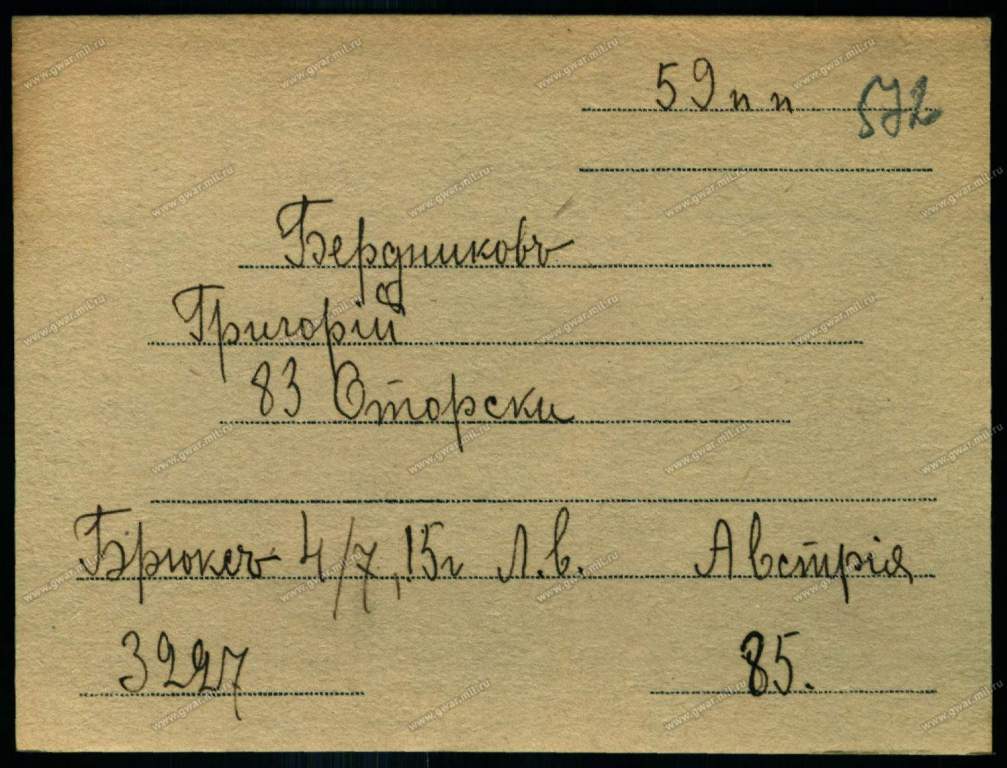 59 п п 572
Бердниковъ
Григорій
83 Оторски
Брюксъ 4/7, 15 г Л.в. Австрія
3227 85.
www.gwar.mil.ru